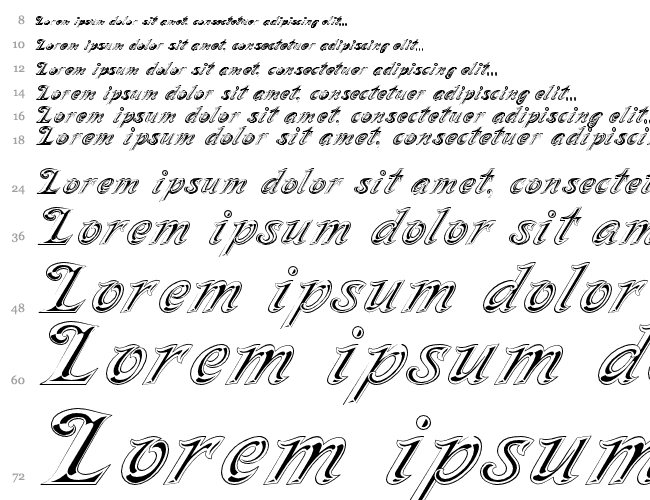 8 Lorem ipsum dolor sit amet, consectetuer adipiscing elit...
10 Lorem ipsum dolor sit amet, consectetuer adipiscing elit...
12 Lorem ipsum dolor sit amet, consectetuer adipiscing elit...
14 Lorem ipsum dolor sit amet, consectetuer adipiscing elit...
16 Lorem ipsum dolor sit amet, consectetuer adipiscing elit..
18 Lorem ipsum dolor sit amet, consectetuer adipisci
24 Lorem ipsum dolor sit amet, consectet
36 Lorem ipsum dolor sit am
48 Lorem ipsum dolor
60 Lorem ipsum d
72 Lorem ipsum